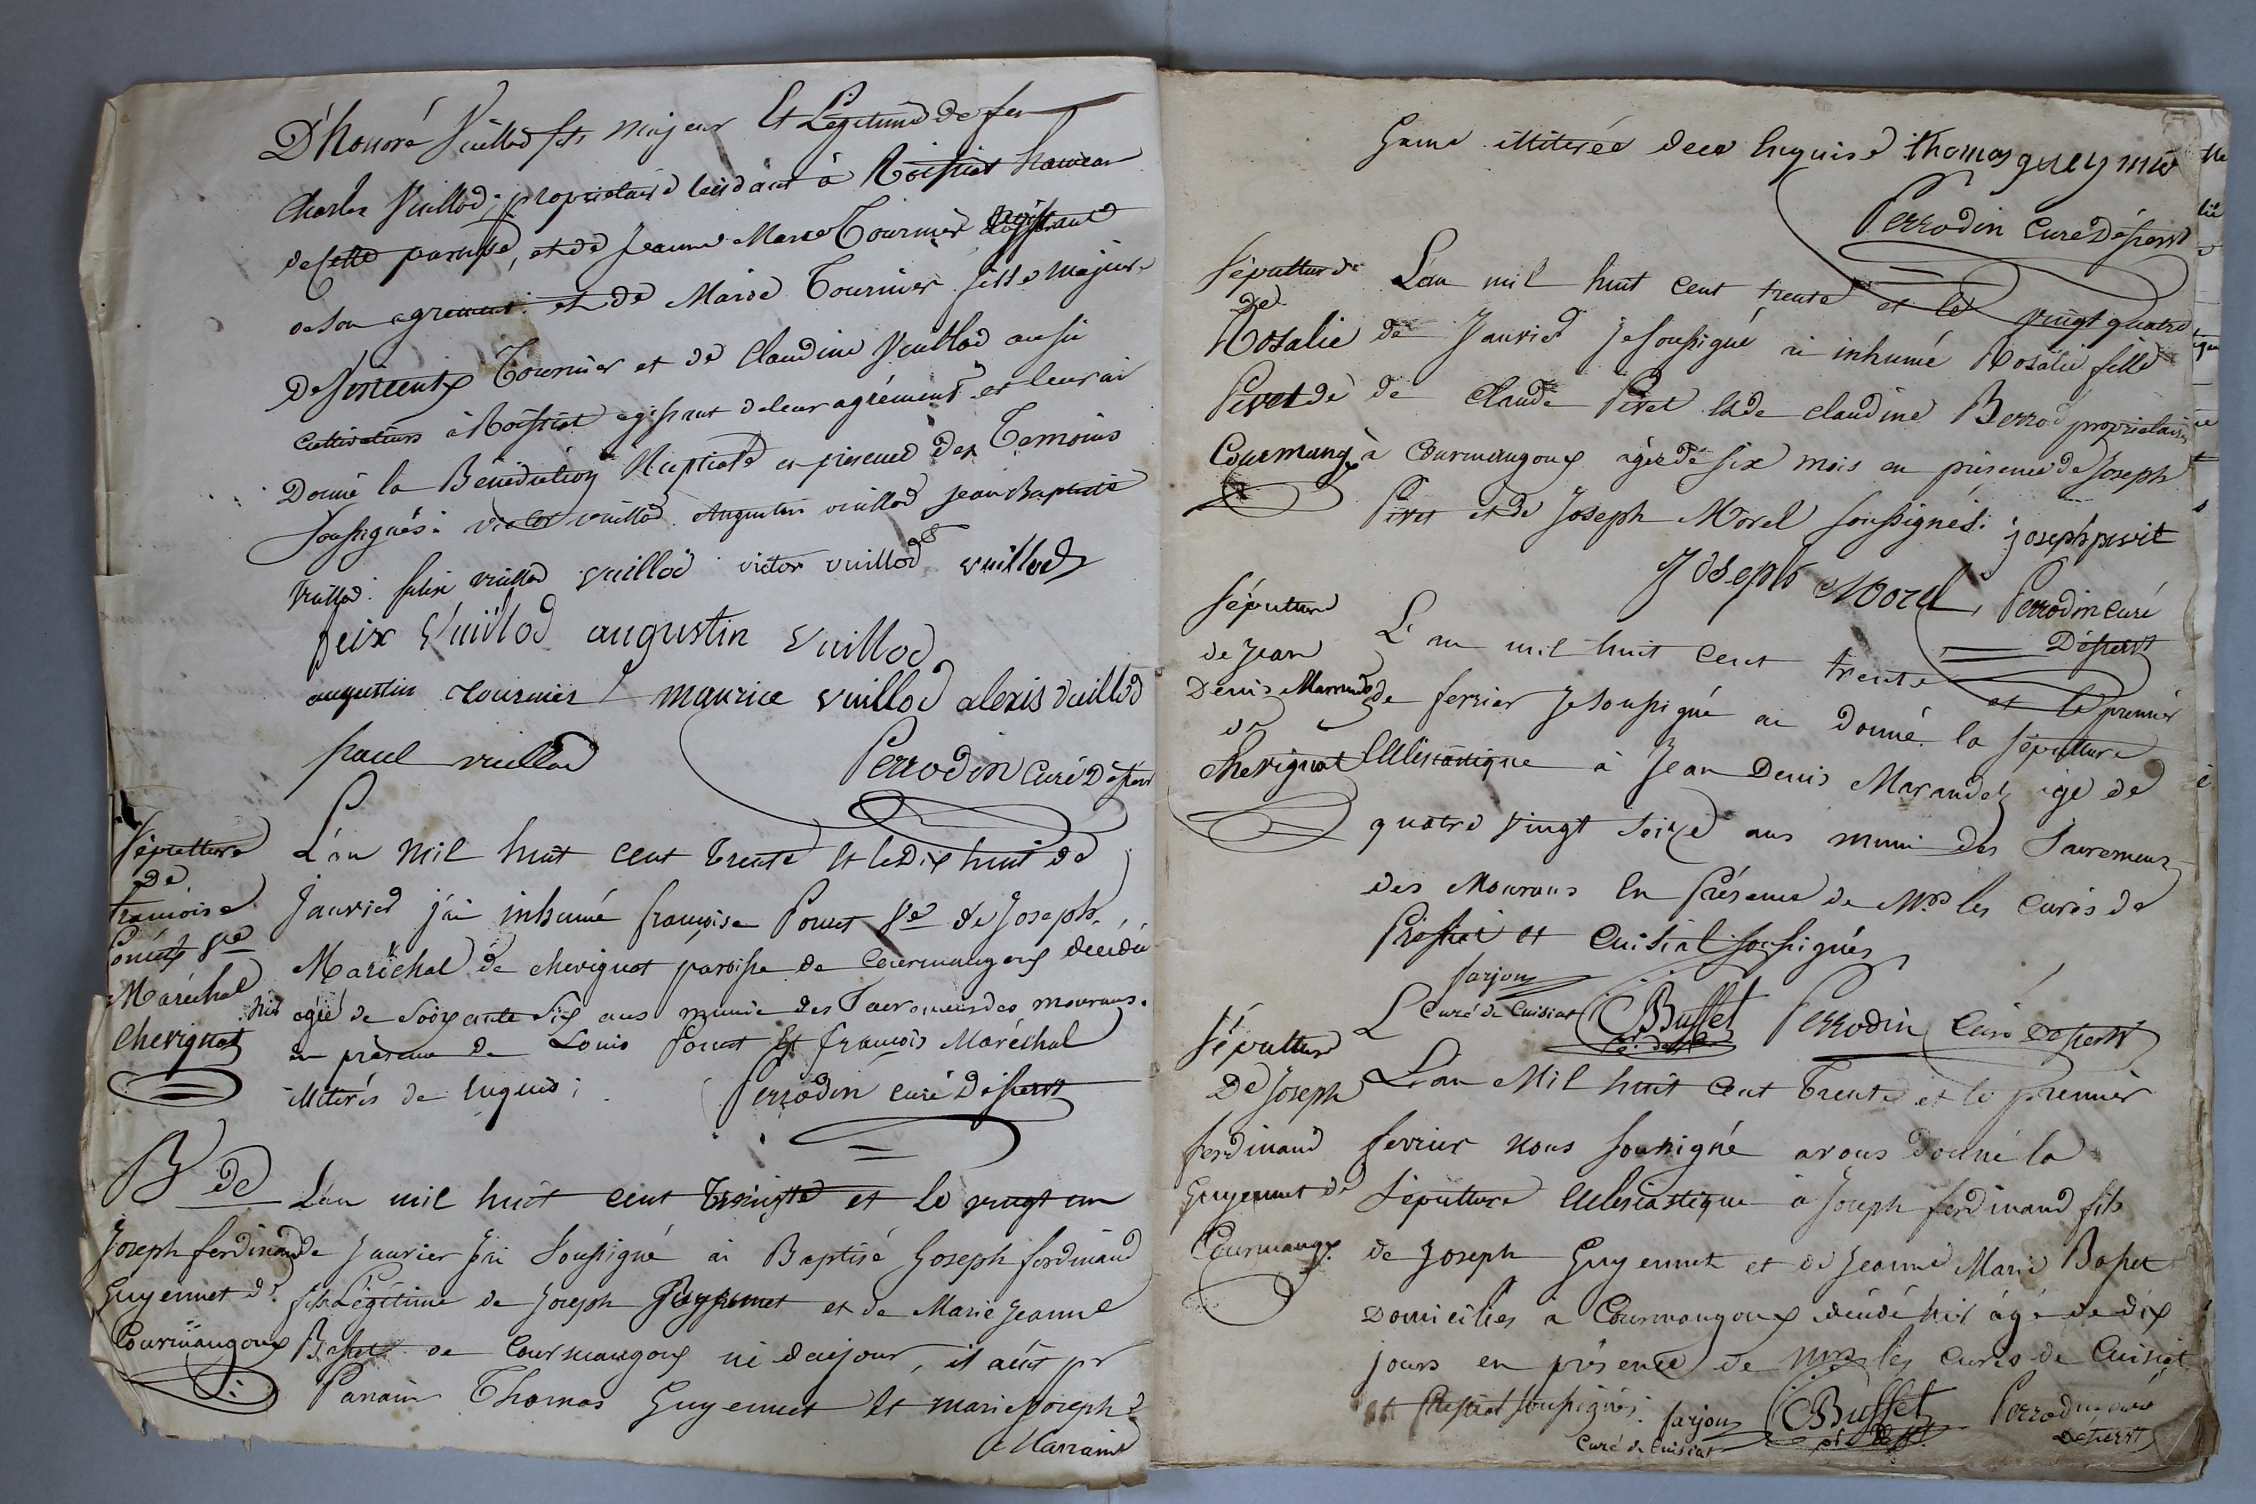 D'honoré Vuillod fils majeur Et Légitime de feu
Charles Vuillod, propriétaire résidant à Roissiat hameau
de cette paroisse, et de Jeanne Marie Tournier agissant
de son agrement. et de Marie Tournier fille majeure
De Vincent Tournier et de Claudine Vuillod aussi
cultivateurs à Roissiat agissant de leur agrément et leur ai
Donné la Bénédiction Nuptiale en présence des Temoins
soussignés: victor vuillod. Augustin vuillod jean Baptiste
Vuillod. felix vuillod vuillod victor vuillod vuillod
feix Vuillod augustin Vuillod
augustin tournier maurice vuillod alexis vuillod
paul vuillod Perrodin Curé Desserv
Sépulture
de
francoise
Ponct Ve
Maréchal
Cherignat
L'an Mil huit cent trente Et le Dix huit de
Janvier j'ai inhumé françoise Ponct Ve de Joseph
Maréchal de cherignat paroisse de Courmangoux décédée
hier agée de soixante six ans munie des Sacremens des mourans.
en présence de Louis Ponct Et françois Maréchal
illitérés de Enquis; Perrodin curé Desservt
B de
Joseph ferdinand
Guyennet de
Courmangoux
L'an mil huit cent trente et le vingt un
de Janvier j'ai Soussigné ai Baptisé Joseph ferdinand
fils Légitime de Joseph Guyennet et de Marie Jeanne
Basset de Courmangoux né de ce jour, il a eut pr
Parrain Thomas Guyennet Et marie joseph
Marraine
illiterée de ce Enquise thomas gueynnié
Perrodin Curé Desservt
Sépulture
de
Rosalie
Pivet de
Courmangx
L'an mil huit cent trente et le vingt quatre
de Janvier je soussigné ai inhumé Rosalie fille
de Claude Pivet et de Claudine Berrod propriétaires
à Courmangoux agée de six mois en présence de Joseph
Pivet et de Joseph Morel soussignés. joseph pivit
Joseph Morel Perrodin Curé
Desservt
Sépulture
de Jean
Denis Marandet
de
Cherignat
L'an mil huit cent trente et le premier
de fevrier Je soussigné ai donné la sépulture
Ecclésiastique à Jean Denis Marandet agé de
quatre vingt seize ans muni des Sacremens
des Mourans En Présence de Mrs les Curés de
Pressiat et Cuisiat soussignés
farjon
Curé de Cuisiat CBuffet Perrodin Curé Desservt
Sépulture
De Joseph
ferdinand
Guyennet de
Courmangx
L'an Mil huit cent Trente et le premier
fevrier nous soussigné avons donné la
Sépulture Ecclesiastique à Joseph ferdinand fils
de Joseph Guyennet et de Jeanne Marie Basset
Domiciliés à Courmangoux décédé hier âgé de dix
jours en présence de mrs les curés de Cuisiat
et Pressiat soussignés. farjon CBuffet Perrodin curé
Curé de Cuisiat Desservt